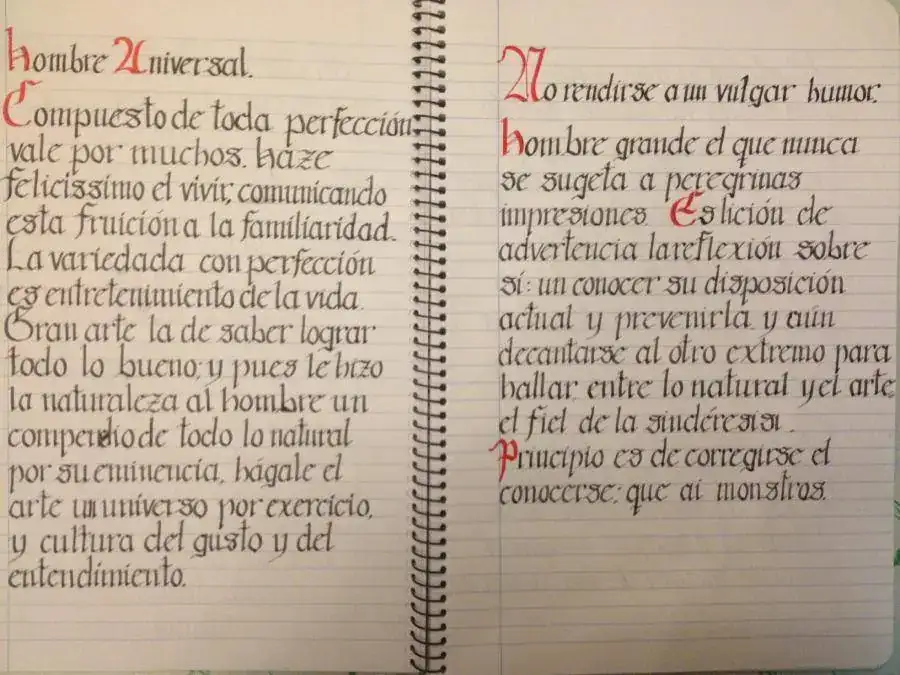 Hombre Universal.
Compuesto de toda perfección
vale por muchos. haze
felicissimo el vivir, comunicando
esta fruición a la familiaridad.
La variedada con perfección
es entretenimiento de la vida.
Gran arte la de saber lograr
todo lo bueno; y pues le hizo
la naturaleza al hombre un
compendio de todo lo natural
por su eminencia, hágale el
arte un universo por exercicio,
y cultura del gusto y del
entendimiento.
No rendirse a un vulgar humor.
hombre grande el que nunca
se sugeta a peregrinas
impresiones. Es lición de
advertencia la reflexión sobre
sí: un conocer su disposición
actual y prevenirla y aún
decantarse al otro extremo para
hallar entre lo natural y el arte
el fiel de la sindéresis.
Principio es de corregirse el
conocerse; que ai monstros.